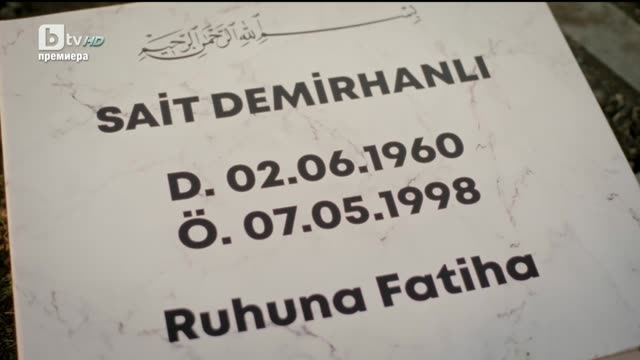 btv HD
премиера
بسم الله الرحمن الرحيم
SAİT DEMİRHANLI
D. 02.06.1960
Ö. 07.05.1998
Ruhuna Fatiha